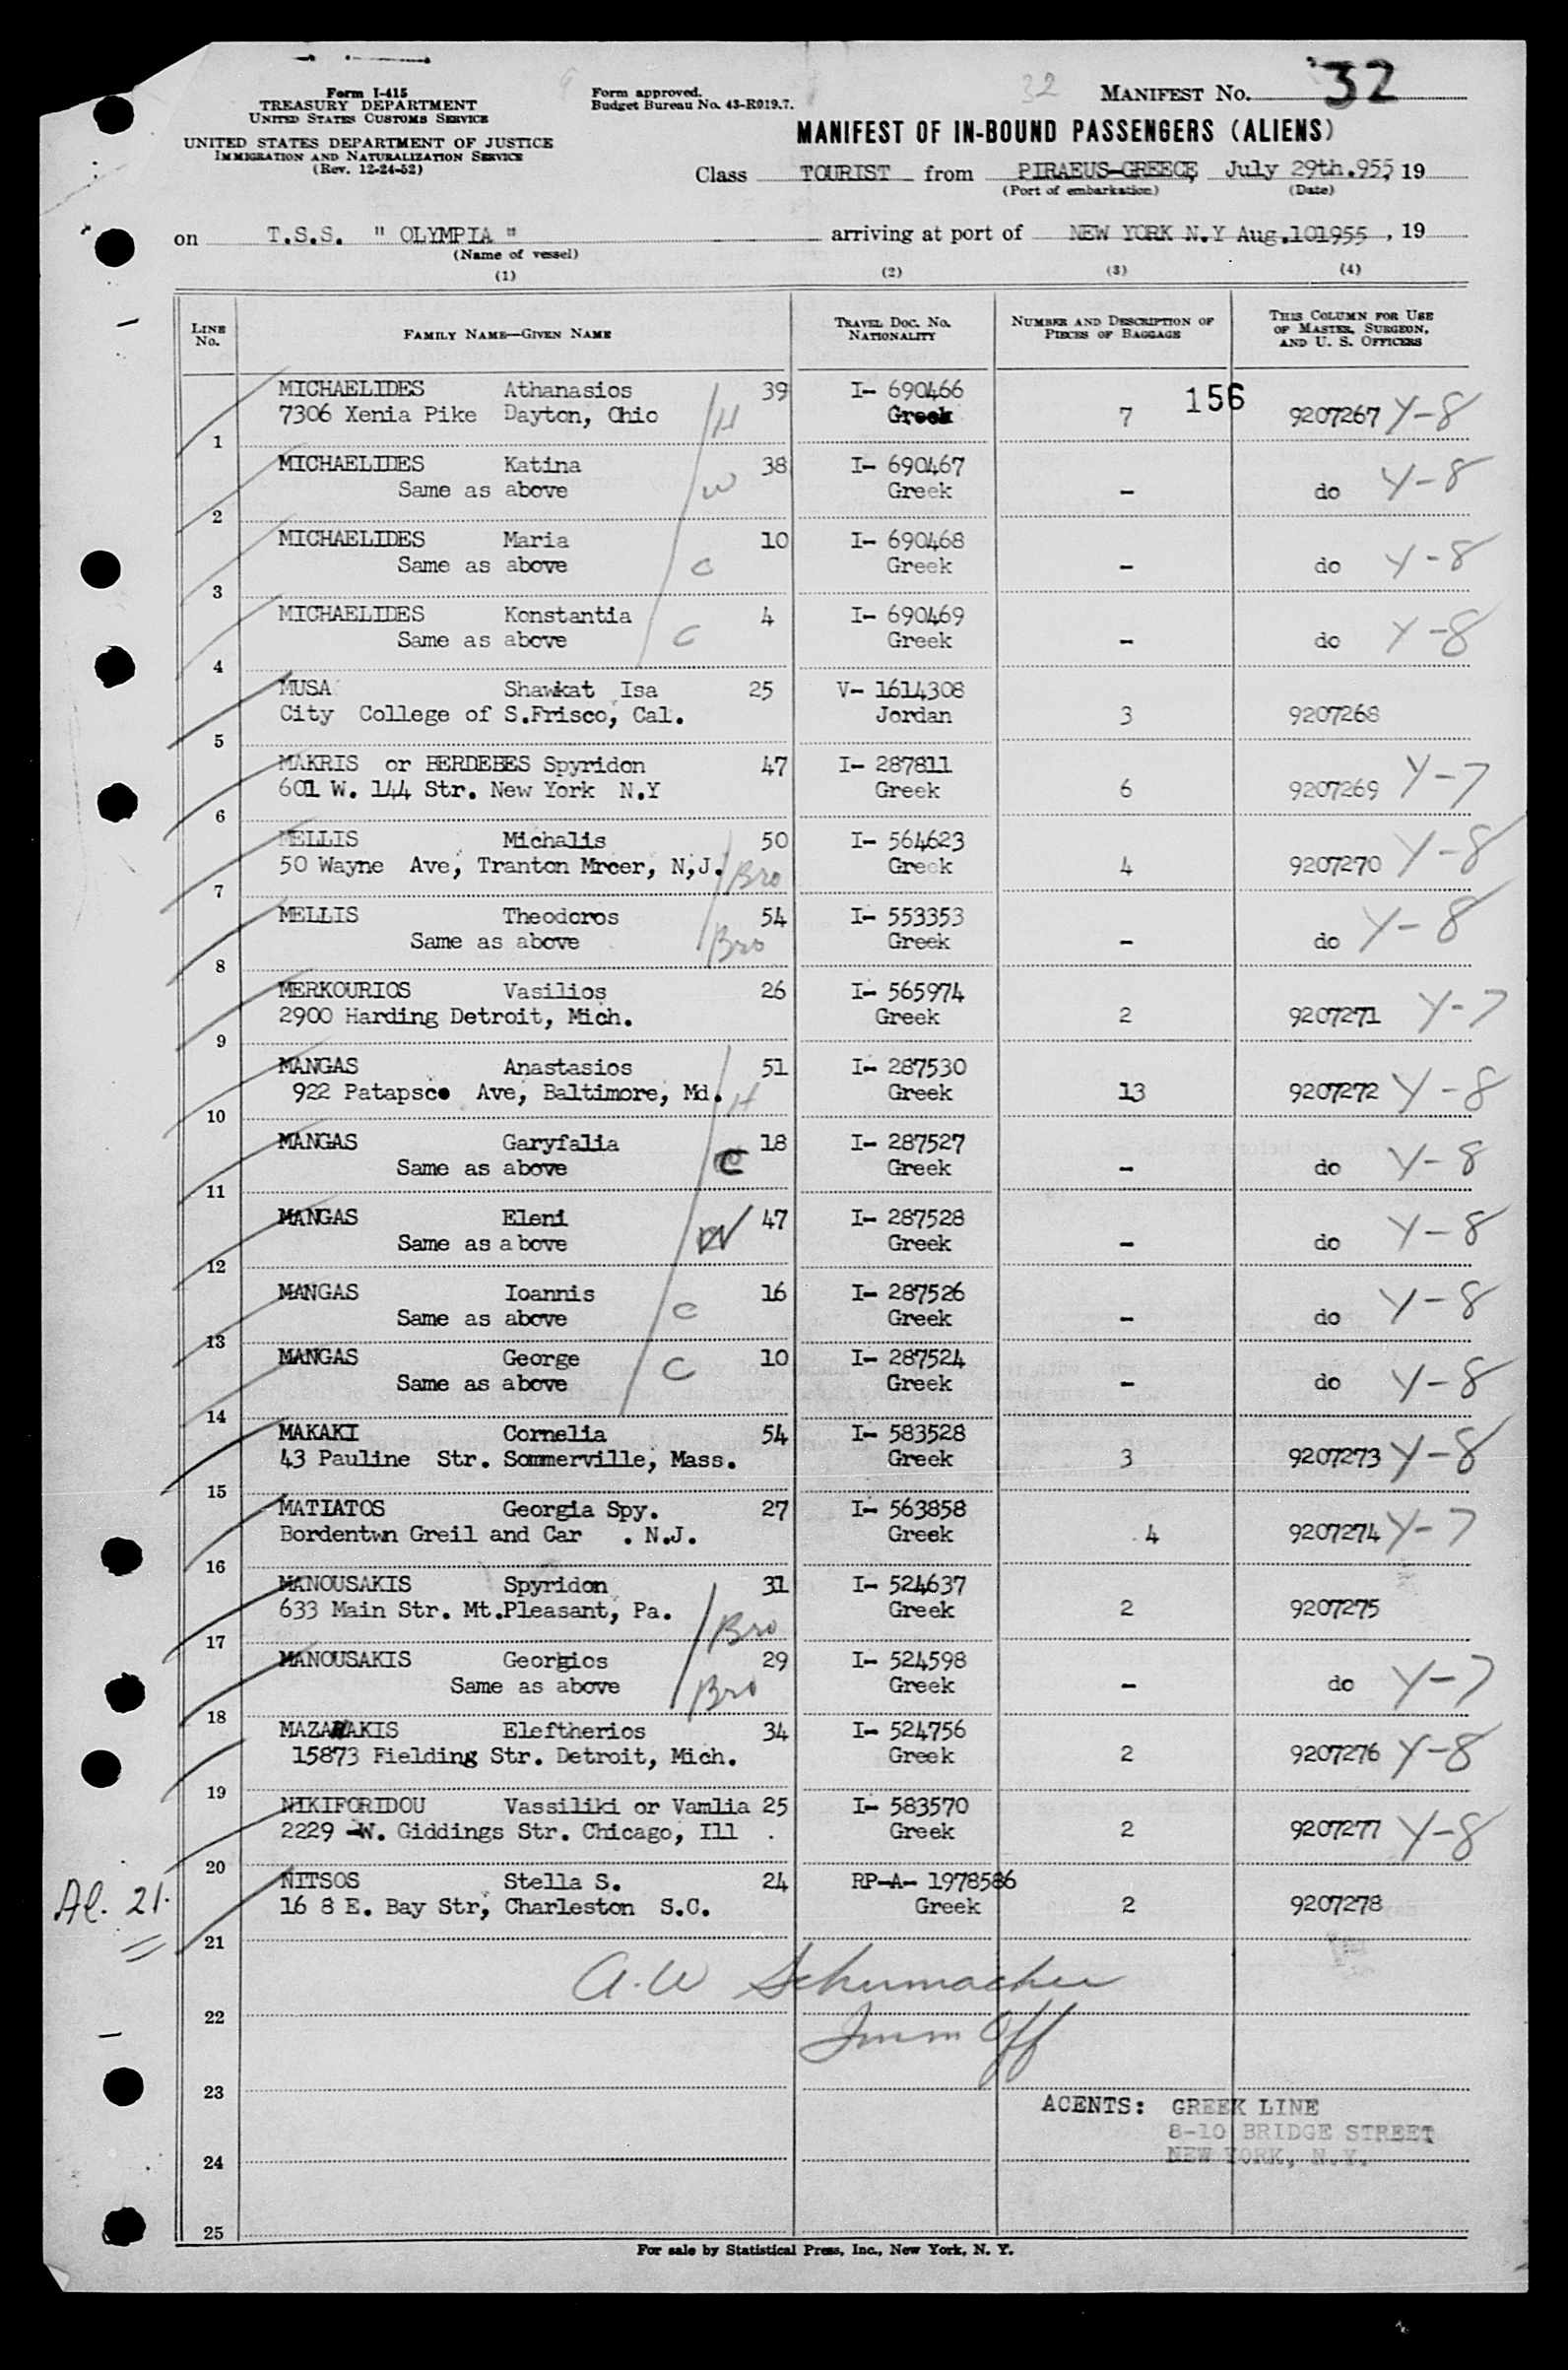 Form I-415
TREASURY DEPARTMENT
UNITED STATES CUSTOMS SERVICE
UNITED STATES DEPARTMENT OF JUSTICE
IMMIGRATION AND NATURALIZATION SERVICE
(Rev. 12-24-52)
Form approved.
Budget Bureau No. 43-R019.7.
32 MANIFEST No. 32
MANIFEST OF IN-BOUND PASSENGERS (ALIENS)
Class TOURIST from PIRAEUS-GREECE, July 29th.955, 19
(Port of embarkation) (Date)
on T.S.S. " OLYMPIA " arriving at port of NEW YORK N.Y Aug.101955 , 19
(Name of vessel)
(1) (2) (3) (4)
LINE No. FAMILY NAME—GIVEN NAME TRAVEL DOC. No. NATIONALITY NUMBER AND DESCRIPTION OF PIECES OF BAGGAGE THIS COLUMN FOR USE OF MASTER, SURGEON, AND U. S. OFFICERS
MICHAELIDES Athanasios 39 I- 690466 156
7306 Xenia Pike Dayton, Ohio H Greek 7 9207267 Y-8
1
MICHAELIDES Katina 38 I- 690467
Same as above W Greek - do Y-8
2
MICHAELIDES Maria 10 I- 690468
Same as above C Greek - do Y-8
3
MICHAELIDES Konstantia 4 I- 690469
Same as above C Greek - do Y-8
4
MUSA Shawkat Isa 25 V- 1614308
City College of S.Frisco, Cal. Jordan 3 9207268
5
MAKRIS or BERDEBES Spyridon 47 I- 287811
601 W. 144 Str. New York N.Y Greek 6 9207269 Y-7
6
MELLIS Michalis 50 I- 564623
50 Wayne Ave, Tranton Mrcer, N,J. Bro Greek 4 9207270 Y-8
7
MELLIS Theodoros 54 I- 553353
Same as above Bro Greek - do Y-8
8
MERKOURIOS Vasilios 26 I- 565974
2900 Harding Detroit, Mich. Greek 2 9207271 Y-7
9
MANGAS Anastasios 51 I- 287530
922 Patapsco Ave, Baltimore, Md. H Greek 13 9207272 Y-8
10
MANGAS Garyfalia 18 I- 287527
Same as above C Greek - do Y-8
11
MANGAS Eleni 47 I- 287528
Same as above W Greek - do Y-8
12
MANGAS Ioannis 16 I- 287526
Same as above C Greek - do Y-8
13
MANGAS George 10 I- 287524
Same as above C Greek - do Y-8
14
MAKAKI Cornelia 54 I- 583528
43 Pauline Str. Sommerville, Mass. Greek 3 9207273 Y-8
15
MATIATOS Georgia Spy. 27 I- 563858
Bordentwn Greil and Car . N.J. Greek 4 9207274 Y-7
16
MANOUSAKIS Spyridon 31 I- 524637
633 Main Str. Mt.Pleasant, Pa. Bro Greek 2 9207275
17
MANOUSAKIS Georgios 29 I- 524598
Same as above Bro Greek - do Y-7
18
MAZARAKIS Eleftherios 34 I- 524756
15873 Fielding Str. Detroit, Mich. Greek 2 9207276 Y-8
19
NIKIFORIDOU Vassiliki or Vamlia 25 I- 583570
2229 W. Giddings Str. Chicago, Ill . Greek 2 9207277 Y-8
20
NITSOS Stella S. 24 RP-A- 1978586
Al. 21. 16 8 E. Bay Str, Charleston S.C. Greek 2 9207278
21
A.W Schumacher
22
Imm Off
23
AGENTS: GREEK LINE
8-10 BRIDGE STREET
24 NEW YORK, N.Y.
25
For sale by Statistical Press, Inc., New York, N. Y.